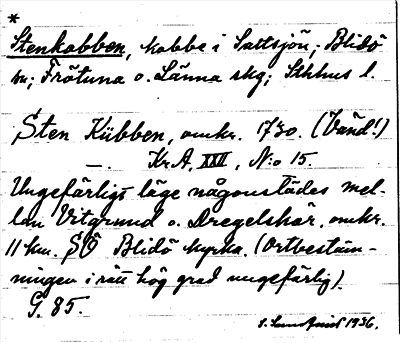 *
Stenkobben, kobbe i Saltsjön; Blidö
sn; Frötuna o. Länna skg; Sthlms l.
Sten Kübben, omkr. 1730. (Vänd!)
—. Kr.A, XXII, N:o 15.
Ungefärligt läge någonstädes mel-
lan Vitgrund o. Dregelskär, omkr.
11 km. SÖ Blidö kyrka. (Ortbestäm-
ningen i rätt hög grad ungefärlig).
G. 85.
1936.